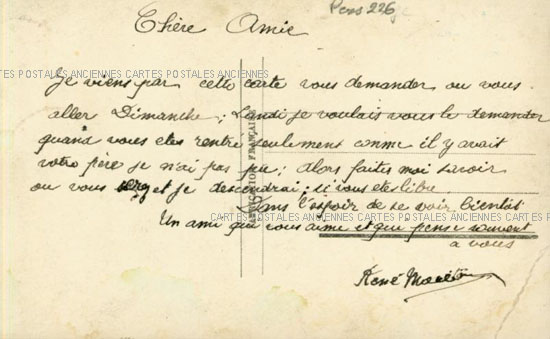 Pens 226
Chère Amie
Je viens par cette carte vous demander ou vous
aller Dimanche; Lundi je voulais vous le demander
quand vous etes rentré seulement comme il y avait
votre père je n'ai pas pu; Alors faites moi savoir
ou vous serez et je descendrai; si vous etes libre.
Dans l'espoir de se voir bientôt
Un ami qui vous aime et qui pense souvent
a vous
René
CARTES POSTALES ANCIENNES CARTES POSTALES ANCIENNES CARTES POSTALES ANCIENNES CARTES
FABRICATION FRANÇAISE
CARTES POSTALES ANCIENNES CARTES POSTALES ANCIENNES CARTES POSTALES ANCIENNES CARTES